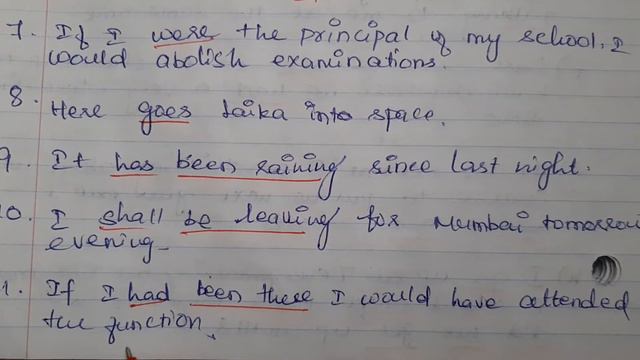 7. If I were the principal of my school. I
would abolish examinations.
8. Here goes Laika into space.
9. It has been raining since last night.
10. I shall be leaving for Mumbai tomorrow
evening.
1. If I had been there I would have attended
the function.